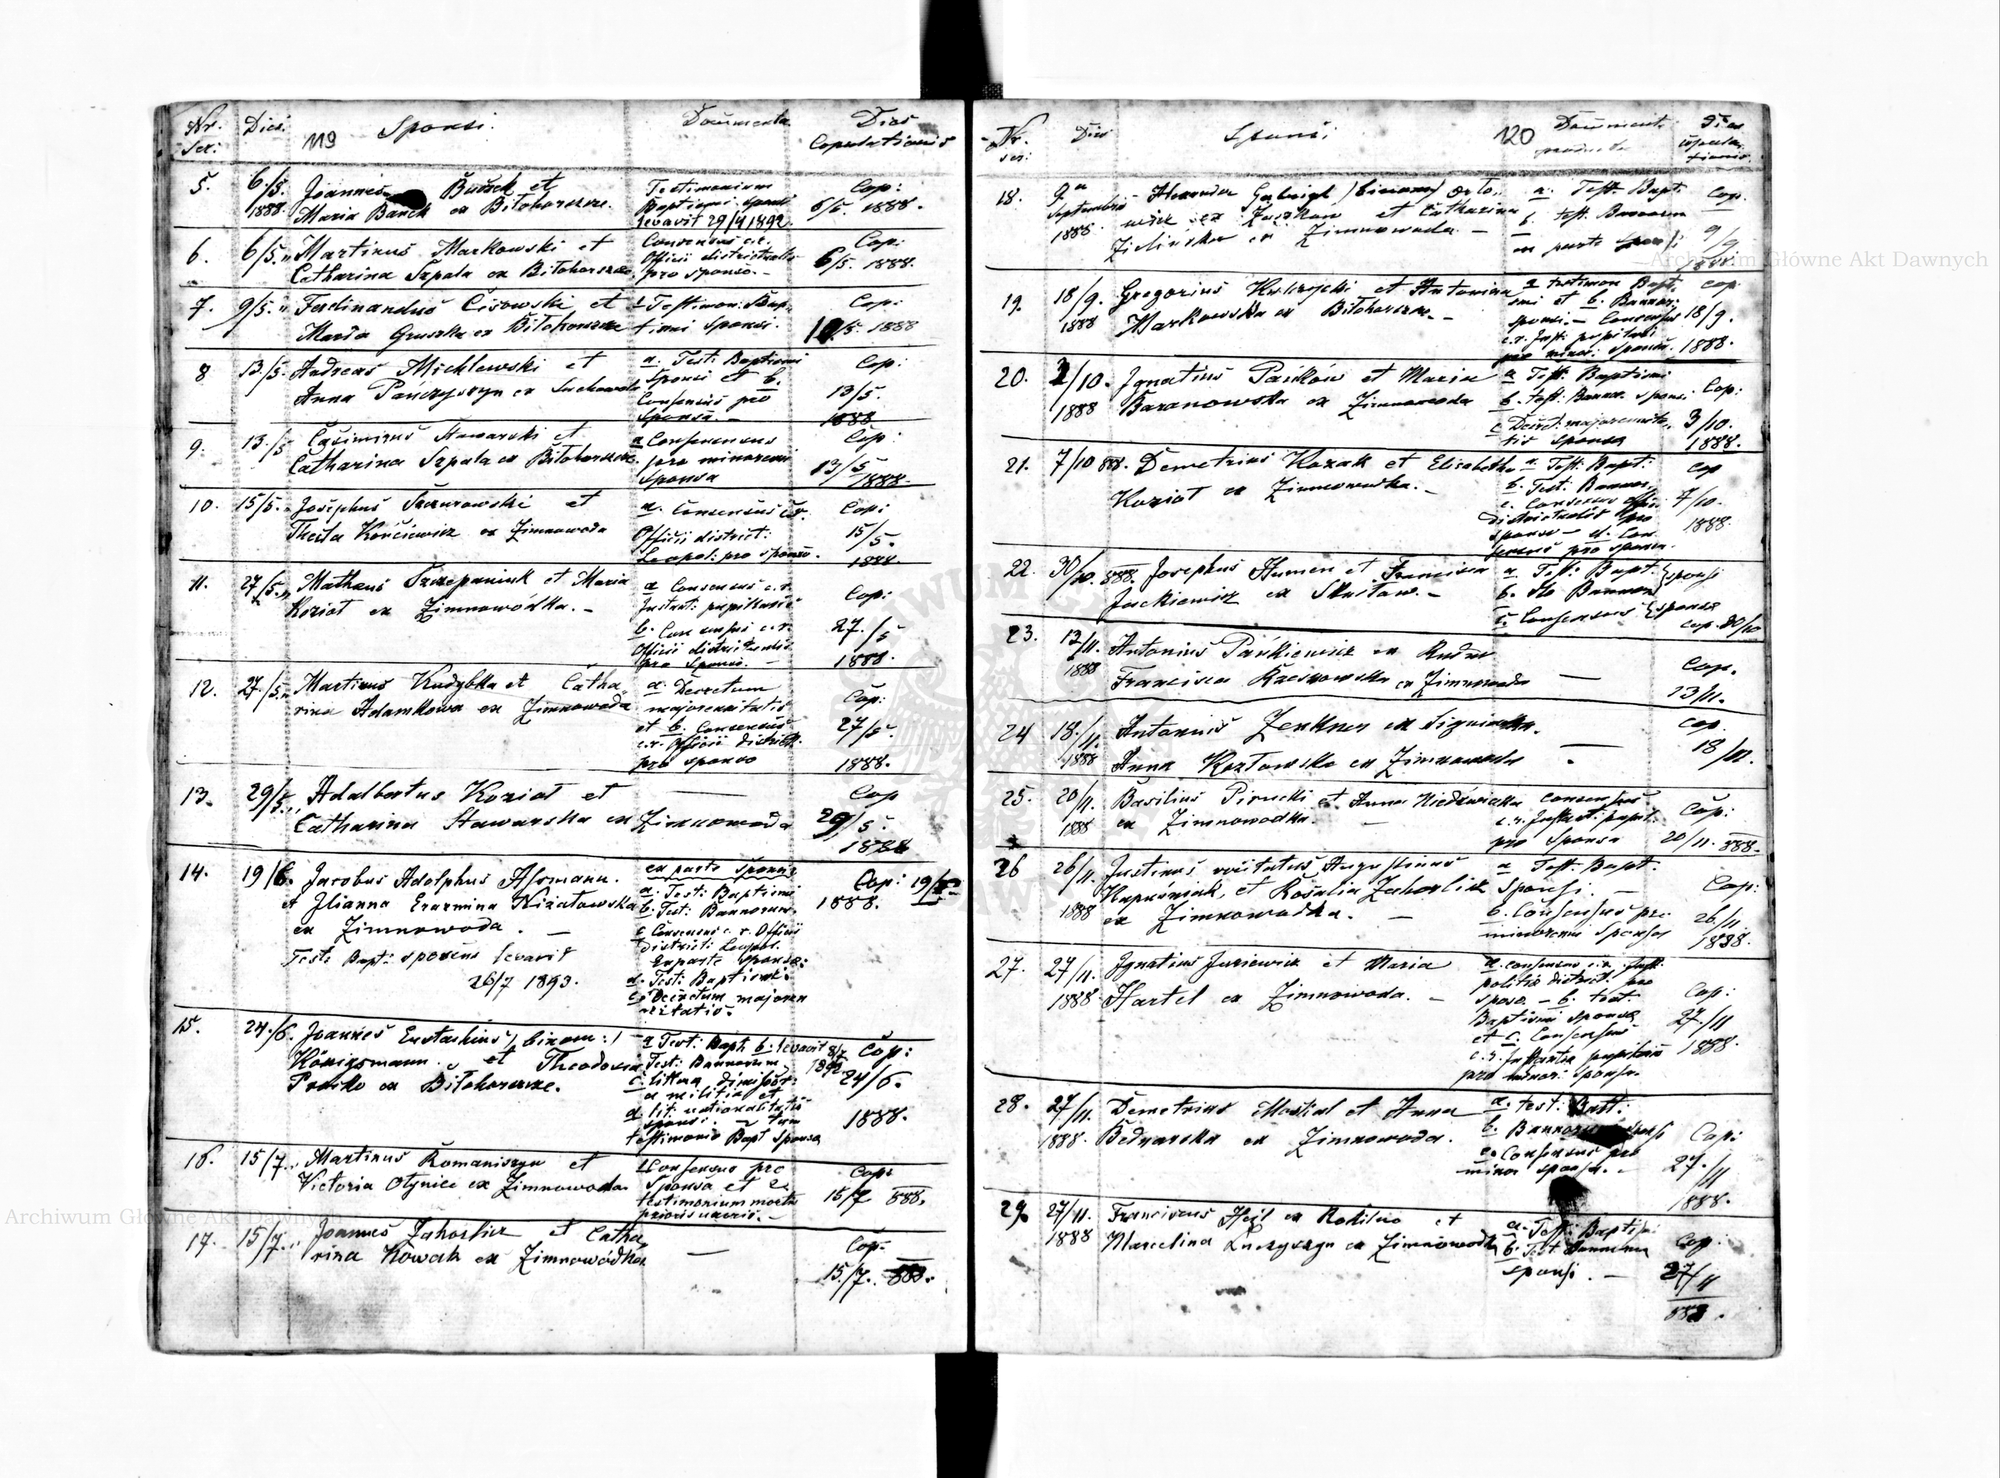 Nr. Ser:
Dies.
119
Sponsi.
Documenta
Dies Copulationis
5.
6/5. 1888.
Joannes Budzek et
Maria Banek ex Biłohorszcze.
Testimonium
Baptismi sponsi
levavit 29/4 1892.
Cop: 6/5. 1888.
6.
6/5. "
Martinus Markowski et
Catharina Szpala ex Biłohorszcze.
Consensus c.r.
Officii districtualis
pro sponso. -
Cop: 6/5. 1888.
7.
9/5. "
Ferdinandus Cisowski et
Maria Gruszka ex Biłohorszcze
a Testimon: Bap-
tismi Sponsi.
Cop: 10/5. 1888
8
13/5.
Andreas Michlewski et
Anna Pańczyszyn ex Suchowola
a. Test: Baptismi
Sponsi et b.
Consensus pro
Sponsa. -
Cop: 13/5. 1888
9.
13./5
Casimirus Stawarski et
Catharina Szpala ex Biłohorszcze.
a Consensus
pro minorenni
Sponsa
Cop: 13/5 1888.
10.
15/5. "
Josephus Szczurowski et
Thecla Kończewicz ex Zimnowoda
a. Consensus c.r.
Officii district:
Leopol: pro sponso.
Cop: 15/5. 1888.
11.
27/5. "
Mathaus Szczepaniuk et Maria
Kozioł ex Zimnowódka. -
a Consensus c.r.
Instant: pupillaris
b. Consensus c.r.
Officii districtualis
pro Sponso. -
Cop: 27./5 1888.
12.
27./5. "
Martinus Kudybka et Catha
rina Adamkowa ex Zimnowoda
a. Decretum
majorennitatis
et b. Consensus
c.r. Officii district.
pro sponso
Cop: 27/5. 1888.
13.
29/5. "
Adalbertus Kozioł et
Catharina Stawarska ex Zimnowoda
Cop 29/5. 1888
14.
19/6.
Jacobus Adolphus Assmann.
et Julianna Erazmina Nizałowska
ex Zimnowoda. -
Test: Bapt: sponsus levavit
26/7 1893.
ex parte Sponsi
a. Test: Baptismi
b. Test: Bannorum
c Consensus c. r. Officii
district: Leopol.
Ex parte Sponsae:
d. Test: Baptismi
e. Decretum majoren
nitatis.
Cop: 19/6 1888.
15.
24./6.
Joannes Eustachius / binom: /
Königsmann. et Theodosia
Praśko ex Biłohorszcze.
a Test: Bapt b: levavit 8/7 1892
Test: Bannorum,
c. litterae dimissor:
a militia et
d. lit. nationalitatis
sponsi. - tum
testimonio Bapt Sponsa
Cop: 24/6. 1888.
16.
15/7. "
Martinus Romaniszyn et
Victoria Olynice ex Zimnowoda.
1. Consensus pro
Sponsa et 2.
testimonium mortis
prioris uxoris. -
Cop: 15/7 888.
17.
15/7. "
Joannes Zahorlicz et Catha
rina Kowach ex Zimnowódka
Cop: 15/7. 888.
Nr. ser:
Dies
Sponsi
120
Document. producta
Dies copula- tionis
18.
9a Septembris 1888
Alexander Gabryel / binomy / Orto-
wicz ex Zuszkow et Catharina
Zielińska ex Zimnowoda. -
a. Test. Bapt.
b. test. Bannorum
ex parte sponsi
Cop. 9/9. 1888.
19.
18/9. 1888
Gregorius Kulczycki et Antonina
Markowska ex Biłohorszcze. -
a testimon Bapt.
smi et b. Bannor:
sponsi. - Consensus
c.r. Inst: pupillari
pro minor: sponsa.
Cop 18/9. 1888.
20.
2/10. 1888
Ignatius Pańków et Maria
Baranowska ex Zimnowoda
a Test: Baptismi
b. Test: Bannor. sponsi.
c Decret: majorennita-
tis sponsa
Cop: 3/10. 1888.
21.
7/10 888.
Demetrius Kozak et Elisabetha
Kozioł ex Zimnowodka. -
a. Test: Bapt:
b. Test: Bannor.
c. Consensus offic.
districtualis pro
sponso - d. Con
sensus pro sponsa.
Cop 7/10. 1888.
22.
30/10. 888.
Josephus Humen et Francisca
Juckiewicz ex Skniłow. -
a. Test: Bapt.
b. tto Bannor } sponsi
c. Consensus } sponsa
Cop. 30/10
23.
13/11. 1888
Antonius Pańkiewicz ex Rudno
Francisca Kaczkowska ex Zimnowoda
Cop. 13/11.
24
18./11. 1888
Antonius Zenkner ex Signiowka.
Anna Kozłowska ex Zimnowoda
Cop. 18/11.
25.
20/11. 1888
Basilius Pirucki et Anna Niedźwiecka
ex Zimnowodka. -
Consensus
c.r. Instant: pupil:
pro Sponsa
Cop: 20/11. 888.
26
26/11. 1888
Justinus recitatus Augustinus
Kapuśniak et Rosalia Zahorlicz
ex Zimnowodka. -
a Test: Bapt.
Sponsi. -
b. Consensus pro
minorenni Sponsa
Cop: 26/11 1888.
27.
27/11. 1888
Ignatius Juriewicz et Maria
Hartel ex Zimnowoda. -
a. consensus c.r. Inst.
politic district. pro
sponso. - b. test.
Baptismi sponsa
et c. Consensus
c.r. Instantia pupillaris
pro minori Sponsa.
Cop: 27./11 1888.
28.
27/11. 1888.
Demetrius Mostial et Anna
Bednarska ex Zimnowoda.
a. test: Bapt:
b. Bannorum sponsi
c. Consensus pro
minor sponsa. -
Cop: 27./11 1888.
29.
27/11. 1888
Franciscus Hejl ex Rokitno et
Marcelina Łuczyszyn ex Zimnowodka
a. Test: Baptis:
b. Test Bannorum
sponsi. -
Cop. 27/11 888.
Archiwum Główne Akt Dawnych
Archiwum Główne Akt Dawnych